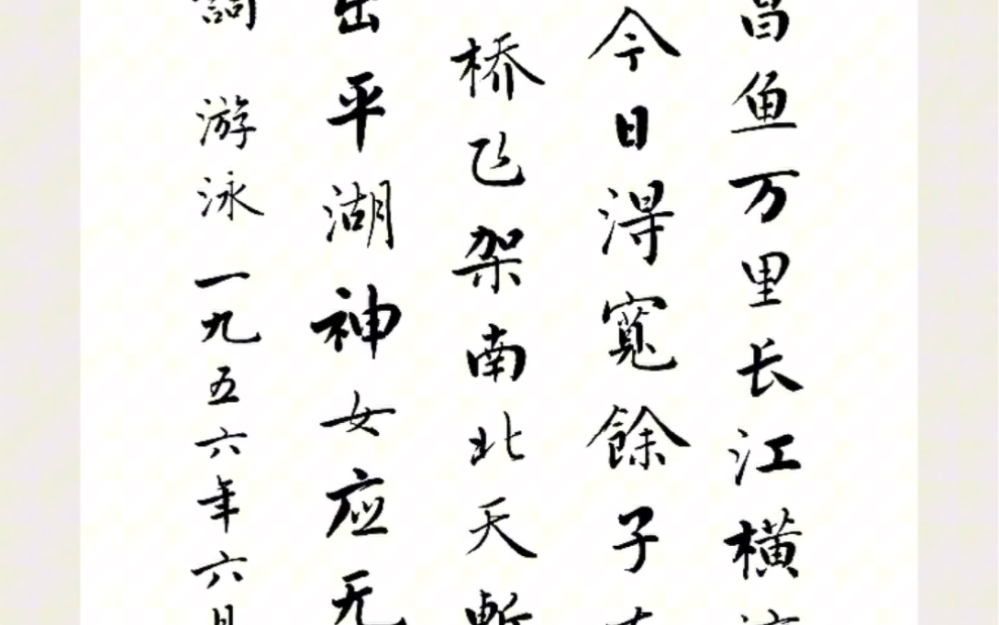 昌鱼万里长江横渡
今日得寬餘子在
桥飞架南北天塹
出平湖神女应无
詞 游泳 一九五六年六月